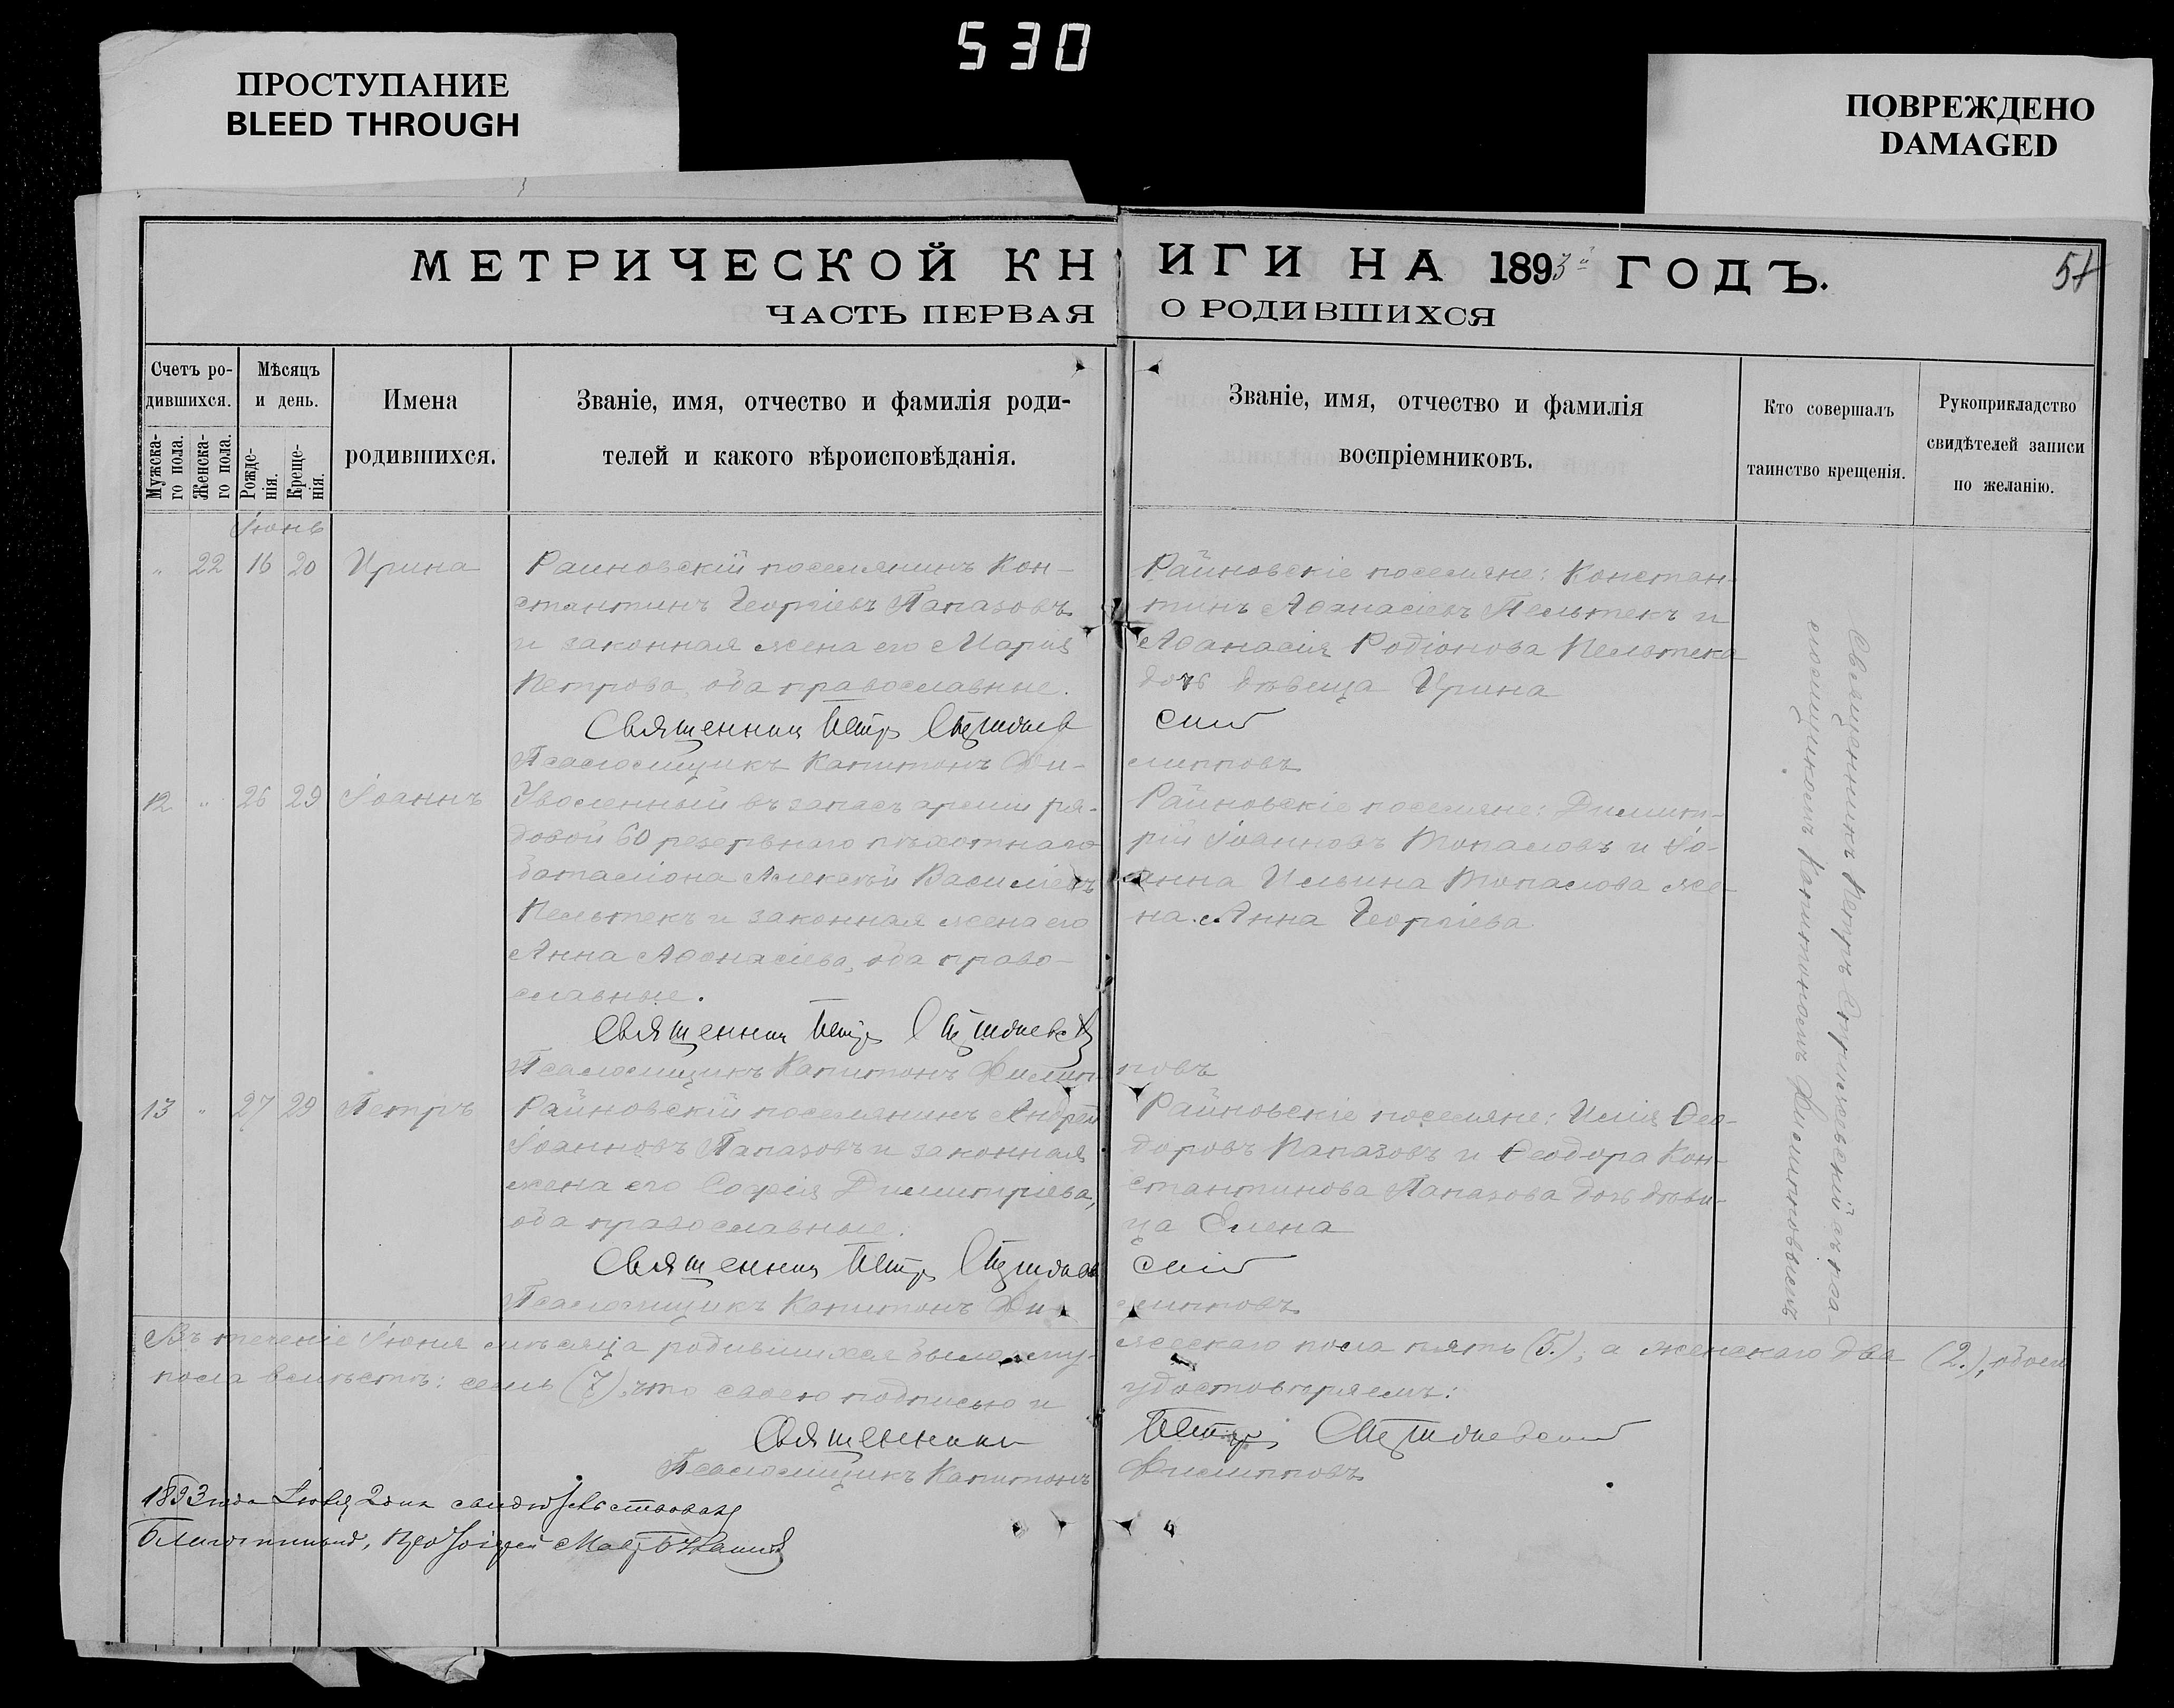 530
ПРОСТУПАНИЕ
BLEED THROUGH
ПОВРЕЖДЕНО
DAMAGED
МЕТРИЧЕСКОЙ КНИГИ НА 1893й ГОДЪ.
ЧАСТЬ ПЕРВАЯ О РОДИВШИХСЯ
Счетъ ро-
дившихся.
Мужска-
го пола.
Женска-
го пола.
Мѣсяцъ
и день.
Рожде-
нія.
Креще-
нія.
Имена
родившихся.
Званіе, имя, отчество и фамилія роди-
телей и какого вѣроисповѣданія.
Званіе, имя, отчество и фамилія
воспріемниковъ.
Кто совершалъ
таинство крещенія.
Рукоприкладство
свидѣтелей записи
по желанію.
Іюнь
" 22 16 20 Ирина
Раиновскій поселянинъ Кон-
стантинъ Георгіевъ Папазовъ
и законная жена его Марія
Петрова, оба православные.
Священникъ Петръ
Псаломщикъ Капитонъ Фи-
липповъ
Райновскіе поселяне: Констан-
тинъ Аѳанасіевъ Пельтекъ и
Аѳанасія Родіонова Пельтека
дочь дѣвица Ирина
12 " 26 29 Іоаннъ
Уволенный въ запасъ арміи ря-
довой 60 резервнаго пѣхотнаго
баталіона Алексѣй Василіевъ
Пельтекъ и законная жена его
Анна Аѳанасіева, оба право-
славные.
Священникъ Петръ
Псаломщикъ Капитонъ Филип-
повъ
Райновскіе поселяне: Димит-
рій Іоанновъ Топаловъ и Іо-
анна Ильина Топалова же-
на Анна Георгіева
13 " 27 29 Петръ
Райновскій поселянинъ Андрей
Іоанновъ Папазовъ и законная
жена его Софія Димитріева,
оба православные.
Священникъ Петръ
Псаломщикъ Капитонъ Фи-
липповъ
Райновскіе поселяне: Илія Ѳео-
доровъ Папазовъ и Ѳеодора Кон-
стантинова Папазова дочь дѣви-
ца Елена
Священникъ Петръ съ пса-
ломщикомъ Капитономъ Филипповымъ
Въ теченіе Іюня мѣсяца родившихся было му-
жескаго пола пять (5.), а женскаго два (2.), обоего
пола вмѣстѣ: семь (7), что своею подписью и
удостовѣряемъ:
Священникъ Петръ
Псаломщикъ Капитонъ Филипповъ
1893 года Іюля 2 дня свидѣтельствовалъ
Благочинный,